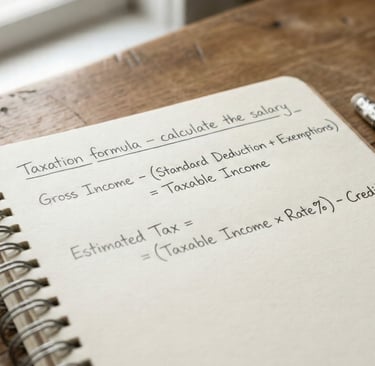 Taxation formula - calculate the salary
Gross Income - (Standard Deduction + Exemptions)
= Taxable Income
Estimated Tax =
= (Taxable Income × Rate%) - Credi